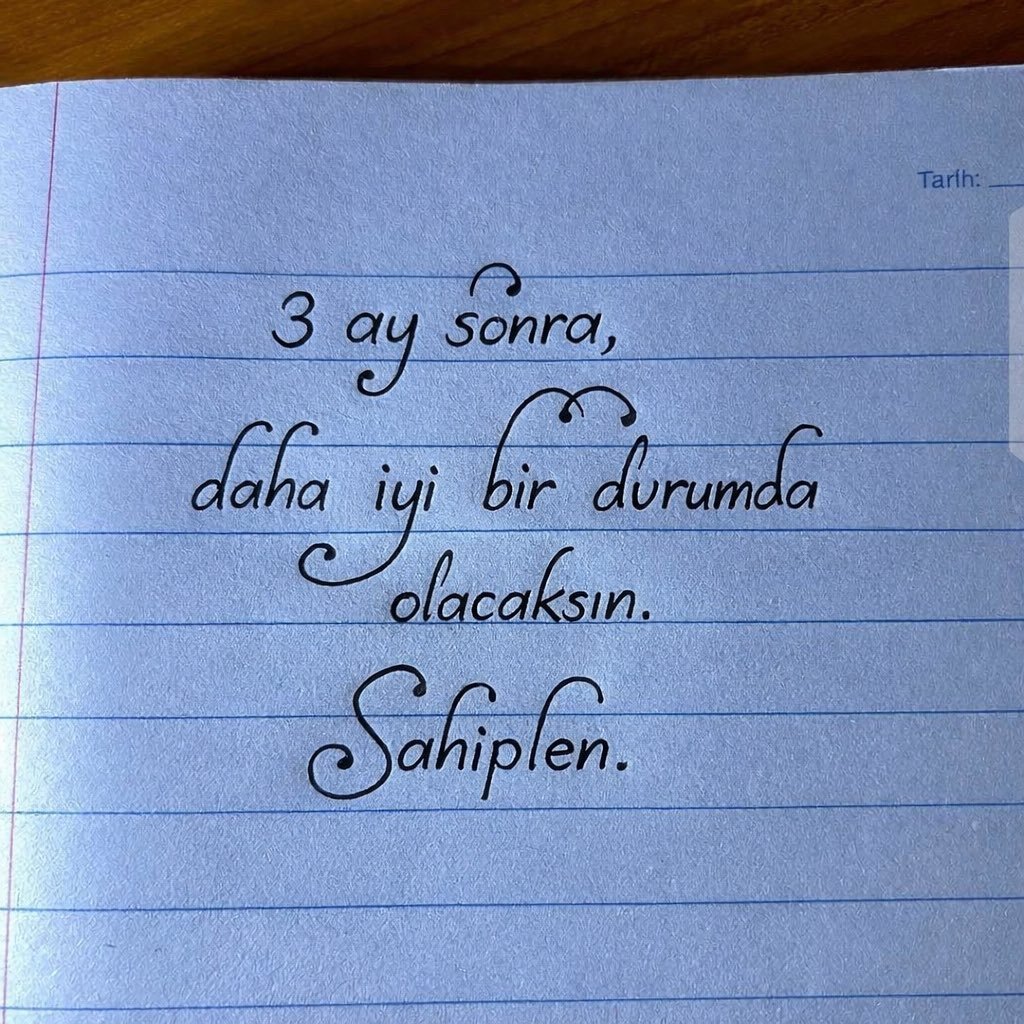 Tarih:
3 ay sonra,
daha iyi bir durumda
olacaksın.
Sahiplen.